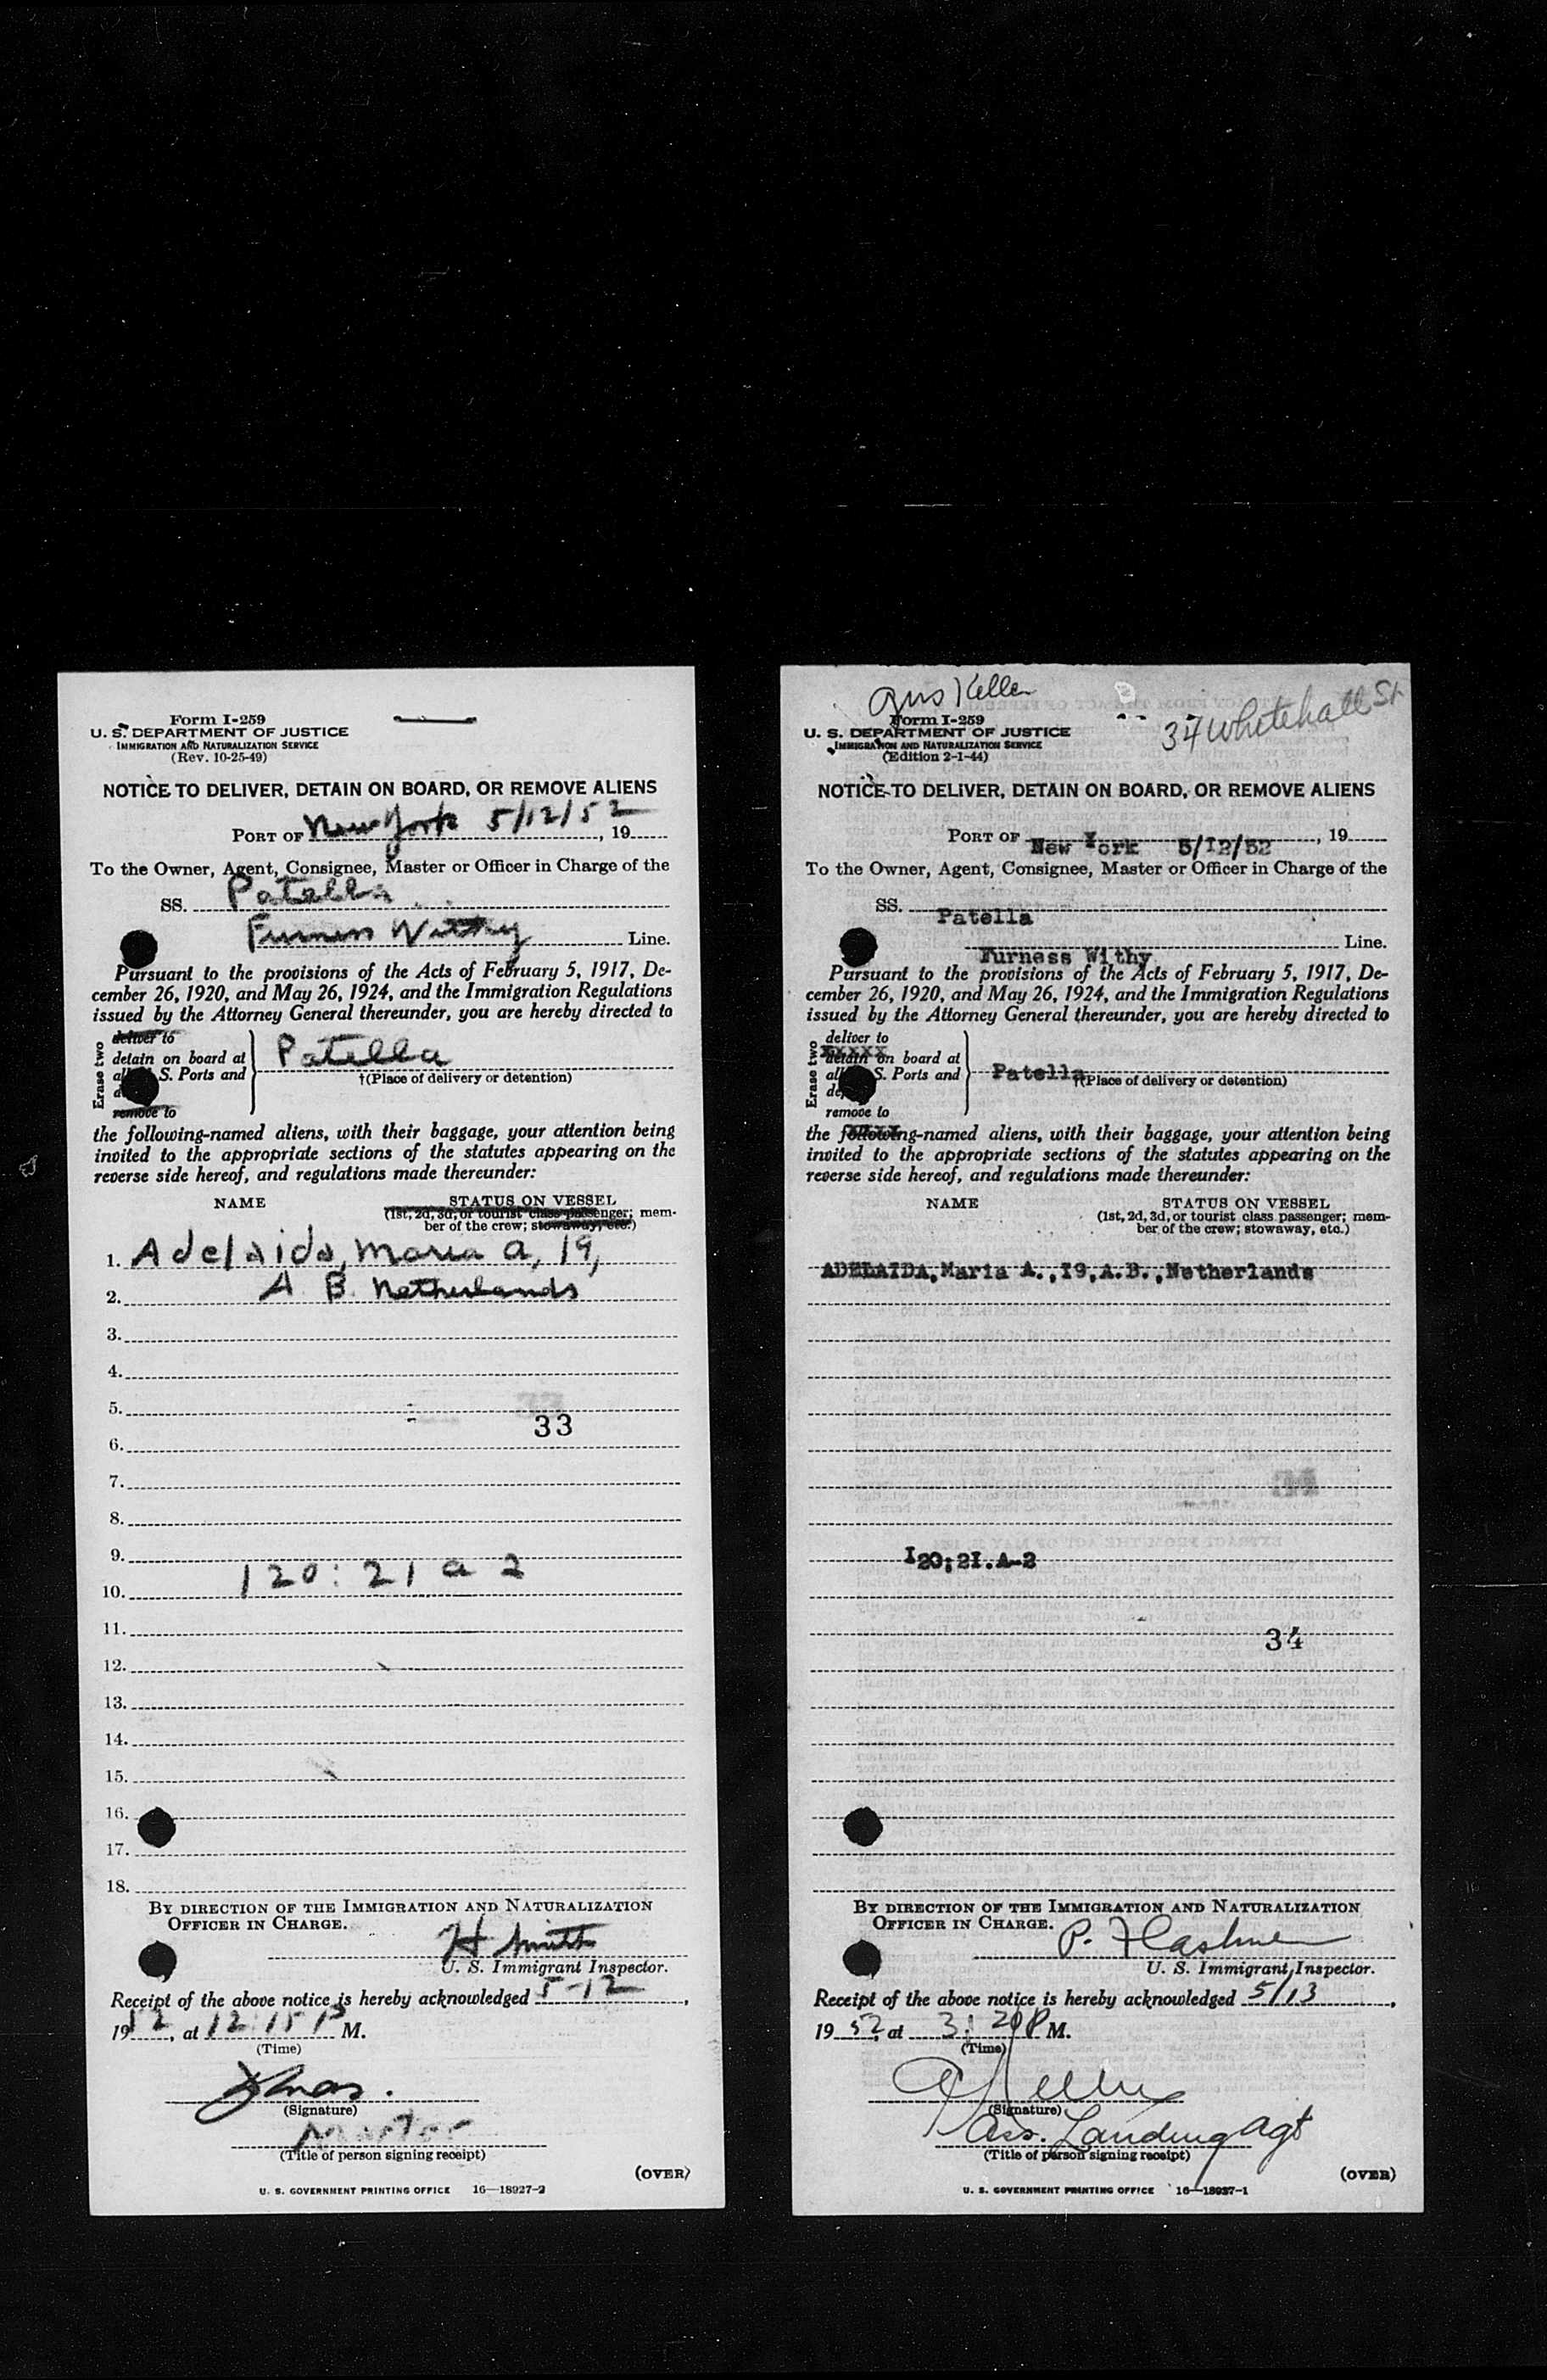 Form I-259
U. S. DEPARTMENT OF JUSTICE
IMMIGRATION AND NATURALIZATION SERVICE
(Rev. 10-25-49)
NOTICE TO DELIVER, DETAIN ON BOARD, OR REMOVE ALIENS
PORT OF New York 5/12/52, 19
To the Owner, Agent, Consignee, Master or Officer in Charge of the
SS. Patella
Furness Withy Line.
Pursuant to the provisions of the Acts of February 5, 1917, De-
cember 26, 1920, and May 26, 1924, and the Immigration Regulations
issued by the Attorney General thereunder, you are hereby directed to
Erase two
deliver to
detain on board at
S. Ports and
Patella
†(Place of delivery or detention)
remove to
the following-named aliens, with their baggage, your attention being
invited to the appropriate sections of the statutes appearing on the
reverse side hereof, and regulations made thereunder:
NAME STATUS ON VESSEL
(1st, 2d, 3d, or tourist class passenger; mem-
ber of the crew; stowaway, etc.)
1. Adelaida, Maria A, 19,
2. A B. Netherlands
3.
4.
5.
33
6.
7.
8.
9.
120: 21 a 2
10.
11.
12.
13.
14.
15.
16.
17.
18.
BY DIRECTION OF THE IMMIGRATION AND NATURALIZATION
OFFICER IN CHARGE.
H Smith
U. S. Immigrant Inspector.
Receipt of the above notice is hereby acknowledged 5-12,
1952, at 12:15 P M.
(Time)
(Signature)
Master
(Title of person signing receipt)
(OVER)
U. S. GOVERNMENT PRINTING OFFICE 16—18927-2
Gus Keller
34 Whitehall St
Form I-259
U. S. DEPARTMENT OF JUSTICE
IMMIGRATION AND NATURALIZATION SERVICE
(Edition 2-1-44)
NOTICE TO DELIVER, DETAIN ON BOARD, OR REMOVE ALIENS
PORT OF New York 5/I2/52, 19
To the Owner, Agent, Consignee, Master or Officer in Charge of the
SS. Patella
Furness Withy Line.
Pursuant to the provisions of the Acts of February 5, 1917, De-
cember 26, 1920, and May 26, 1924, and the Immigration Regulations
issued by the Attorney General thereunder, you are hereby directed to
Erase two
deliver to
xxxxx
detain on board at
S. Ports and
Patella
†(Place of delivery or detention)
remove to
the following-named aliens, with their baggage, your attention being
invited to the appropriate sections of the statutes appearing on the
reverse side hereof, and regulations made thereunder:
NAME STATUS ON VESSEL
(1st, 2d, 3d, or tourist class passenger; mem-
ber of the crew; stowaway, etc.)
ADELAIDA,Maria A.,I9,A.B.,Netherlands
34
I20;2I.A-2
34
BY DIRECTION OF THE IMMIGRATION AND NATURALIZATION
OFFICER IN CHARGE.
U. S. Immigrant Inspector.
Receipt of the above notice is hereby acknowledged 5/13,
19 52 at 3:20 P M.
(Time)
(Signature)
Ass. Landing Agt
(Title of person signing receipt)
(OVER)
U. S. GOVERNMENT PRINTING OFFICE 16—18927-1